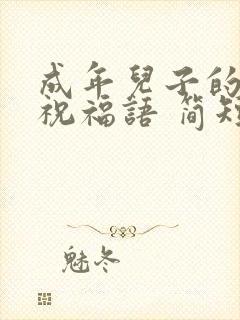 成年兒子的
祝福語 简短
魅冬